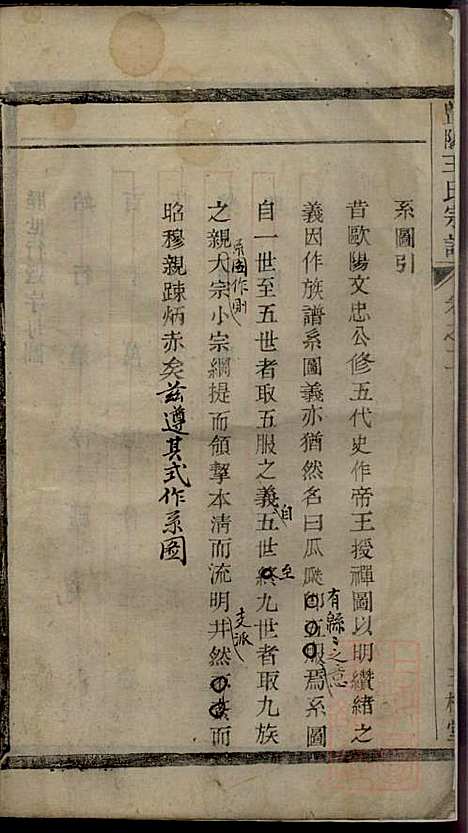 王氏宗譜
系圖引
昔歐陽文忠公修五代史作帝王授禪圖以明纘緒之
義因作族譜系圖義亦猶然名曰瓜瓞
有緜〻之意
焉系圖
自一世至五世者取五服之義
自
五世
至
九世者取九族
之親
系圖作則
大宗小宗綱提而領挈本清而流明井然
支派
而
昭穆親踈炳赤矣茲遵其式作系圖